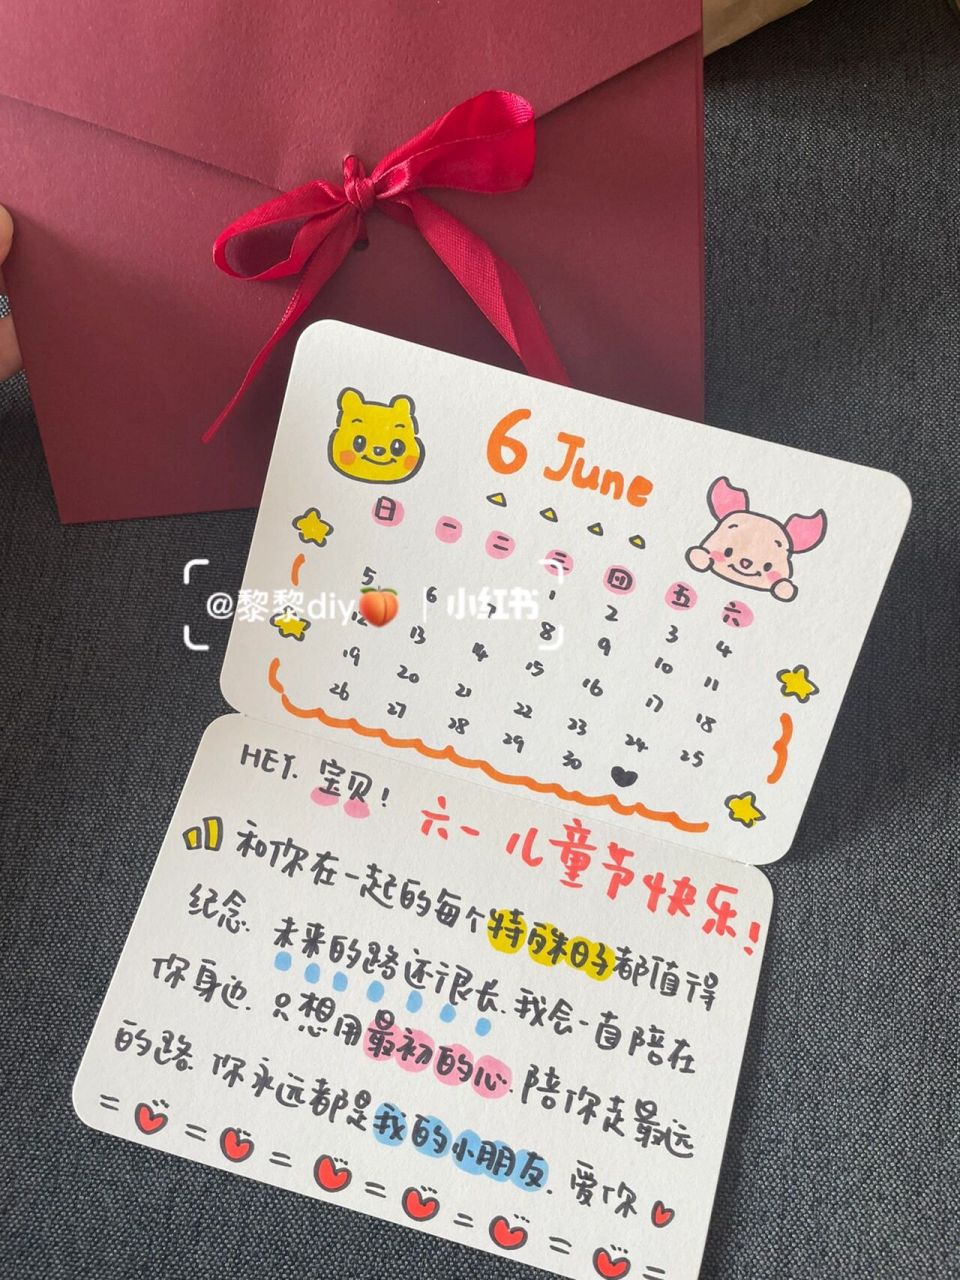 6 June
日 一 二 三 四 五 六
1 2 3 4
5 6 8 9 10 11
12 13 14 15 16 17 18
19 20 21 22 23 24 25
26 27 28 29 30
@黎黎diy🍑 | 小红书
HEY. 宝贝！
六一儿童节快乐！
和你在一起的每个特殊日子都值得
纪念. 未来的路还很长. 我会一直陪在
你身边. 只想用最初的心. 陪你走最远
的路. 你永远都是我的小朋友. 爱你